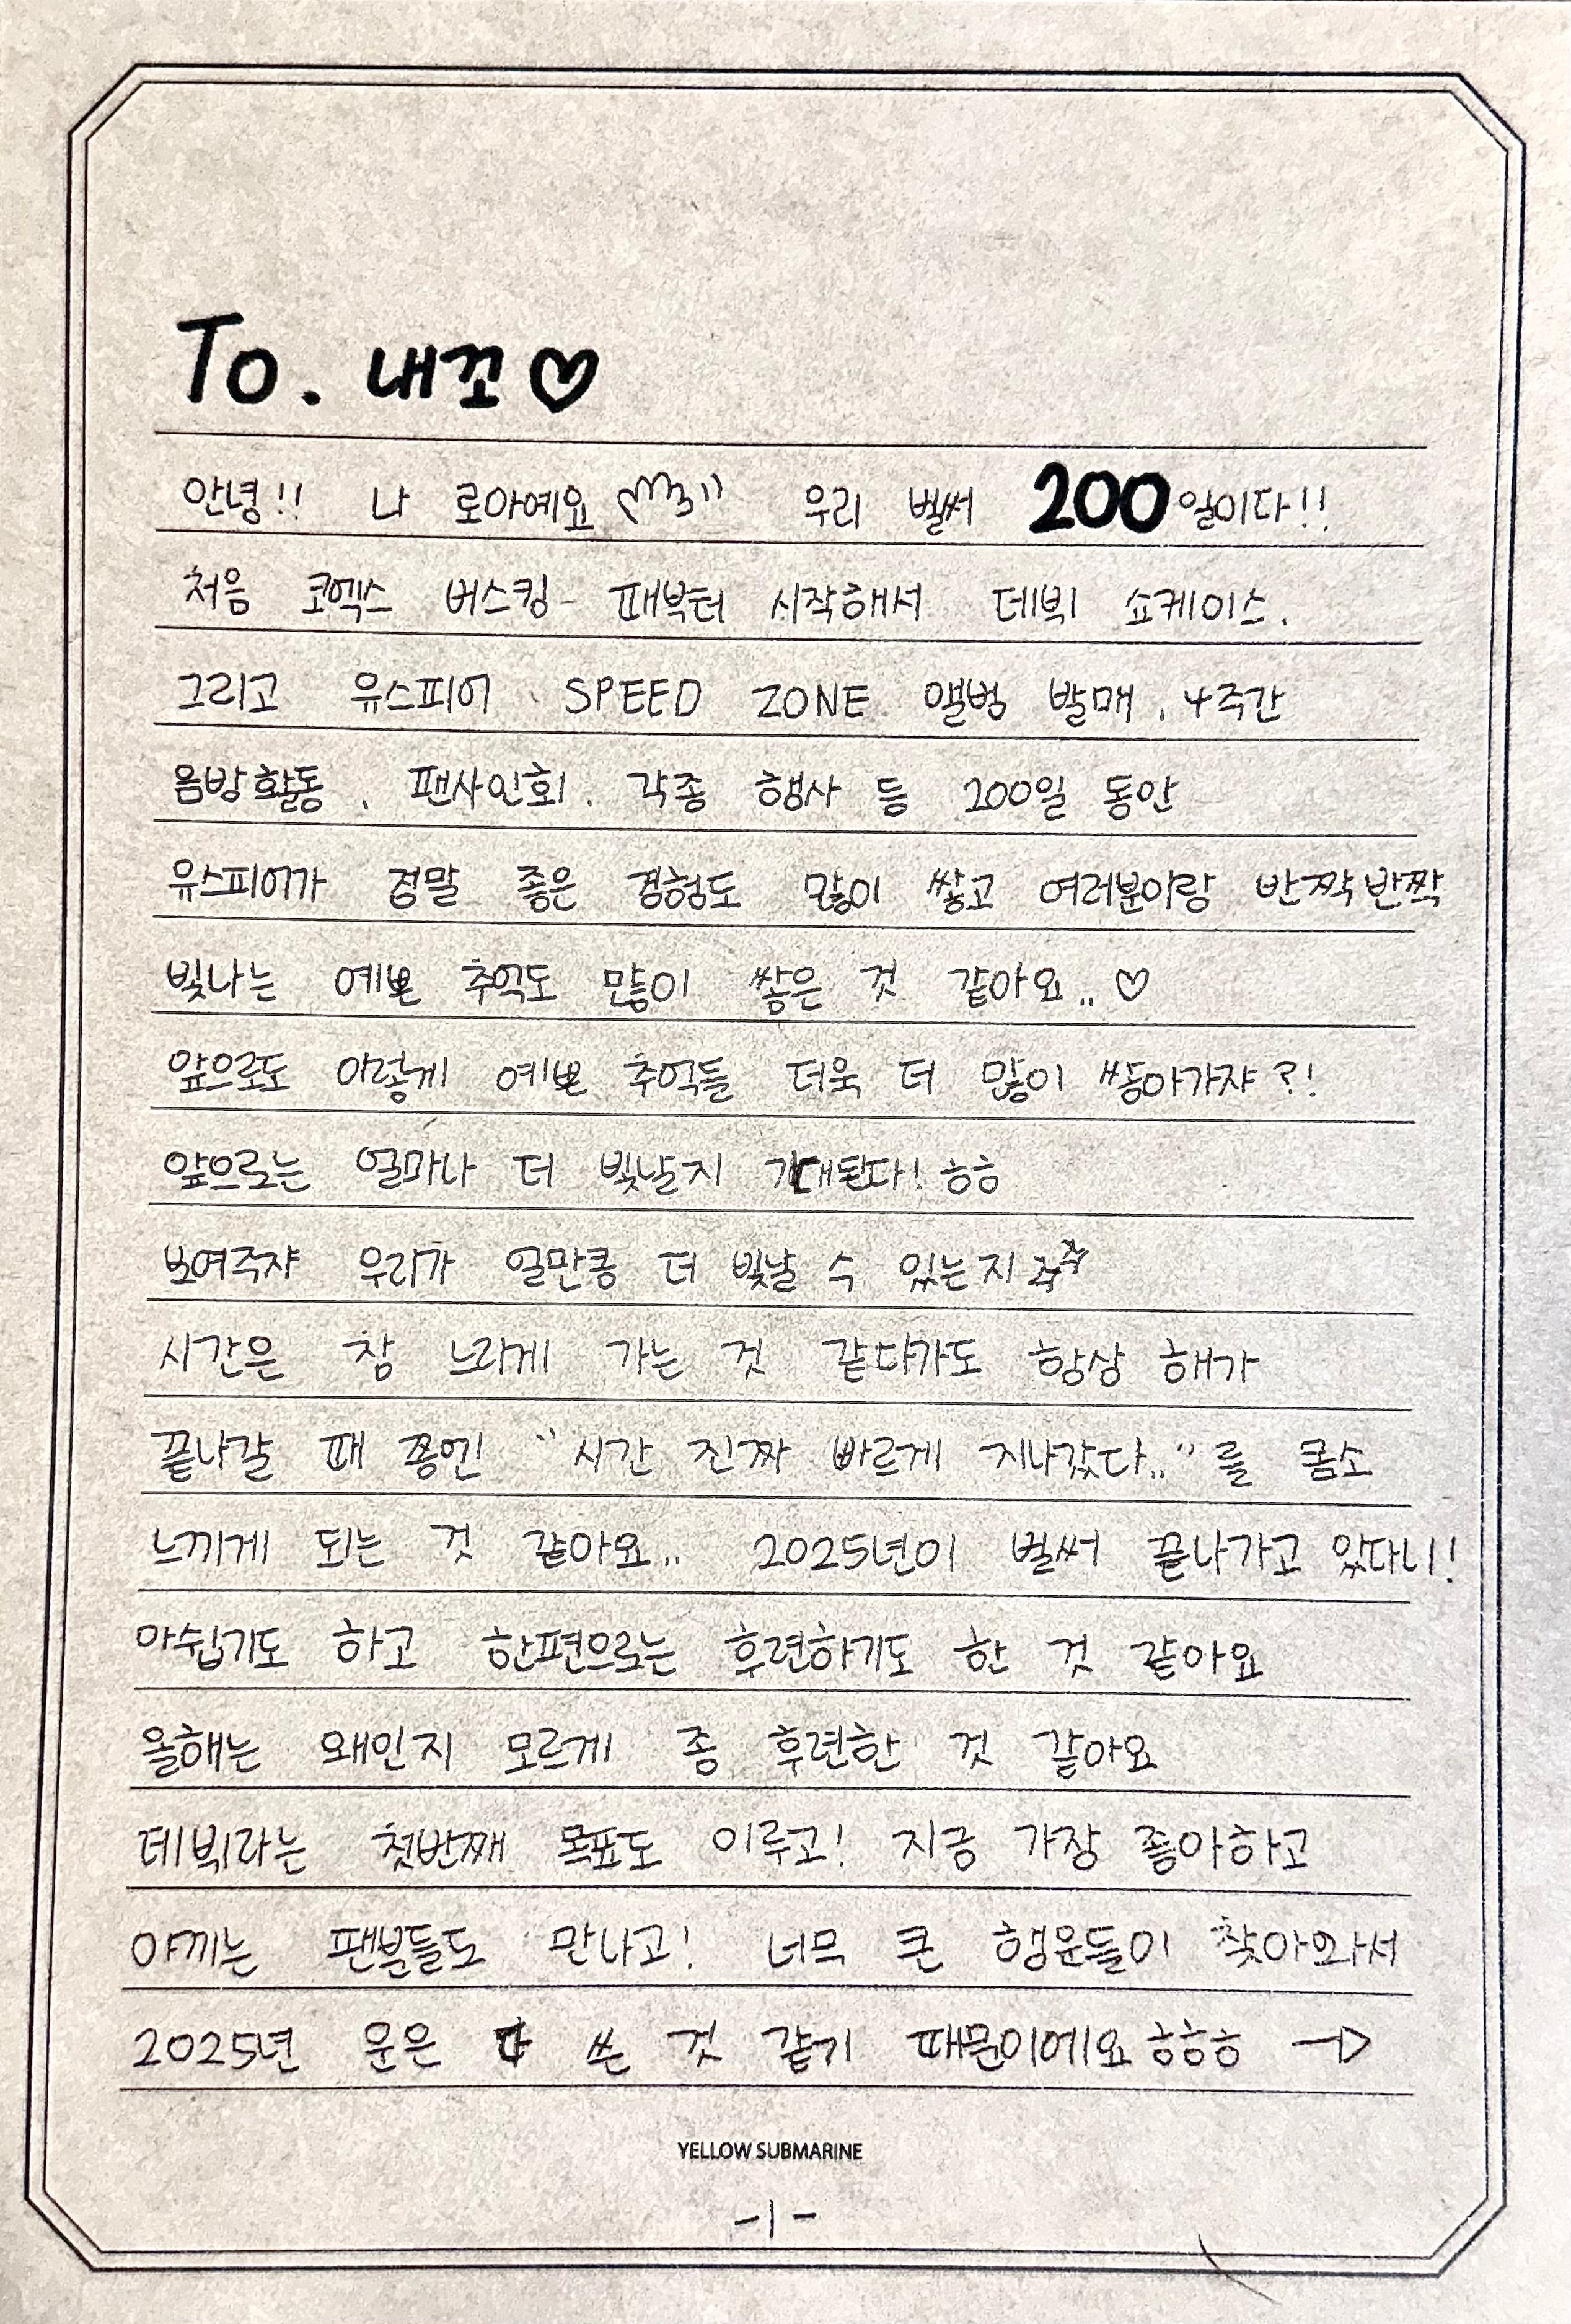 To. 내꼬♡
안녕!! 나 로아예요 우리 벌써 200일이다!!
처음 코엑스 버스킹 때부터 시작해서 데뷔 쇼케이스.
그리고 유스피어 SPEED ZONE 앨범 발매. 4주간
음방활동. 팬사인회. 각종 행사 등 200일 동안
유스피어가 정말 좋은 경험도 많이 쌓고 여러분이랑 반짝반짝
빛나는 예쁜 추억도 많이 쌓은 것 같아요..♡
앞으로도 이렇게 예쁜 추억들 더욱 더 많이 쌓아가쟈?!
앞으로는 얼마나 더 빛날지 기대된다! ㅎㅎ
보여주쟈 우리가 얼만큼 더 빛날 수 있는지
시간은 참 느리게 가는 것 같다가도 항상 해가
끝나갈 때 쯤엔 "시간 진짜 빠르게 지나갔다.."를 몸소
느끼게 되는 것 같아요.. 2025년이 벌써 끝나가고 있다니!
아쉽기도 하고 한편으로는 후련하기도 한 것 같아요
올해는 왜인지 모르게 좀 후련한 것 같아요
데뷔라는 첫번째 목표도 이루고! 지금 가장 좋아하고
아끼는 팬분들도 만나고! 너무 큰 행운들이 찾아와서
2025년 운은 다 쓴 것 같기 때문이에요ㅎㅎㅎ →
YELLOW SUBMARINE
-1-